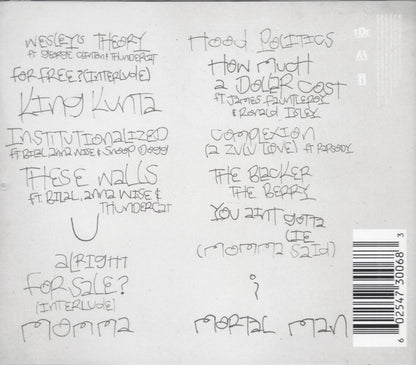 Wesley's Theory
ft George Clinton & Thundercat
For Free? (Interlude)
King Kunta
Institutionalized
ft Bilal, Anna Wise & Snoop Dogg
These Walls
ft Bilal, Anna Wise &
Thundercat
U
Alright
For Sale?
(Interlude)
Momma
Hood Politics
How Much
a Dollar Cost
ft James Fauntleroy
& Ronald Isley
Complexion
(a Zulu Love) ft Rapsody
The Blacker
The Berry
You Aint Gotta
Lie
(Momma Said)
i
Mortal Man
6 02547 30068 3